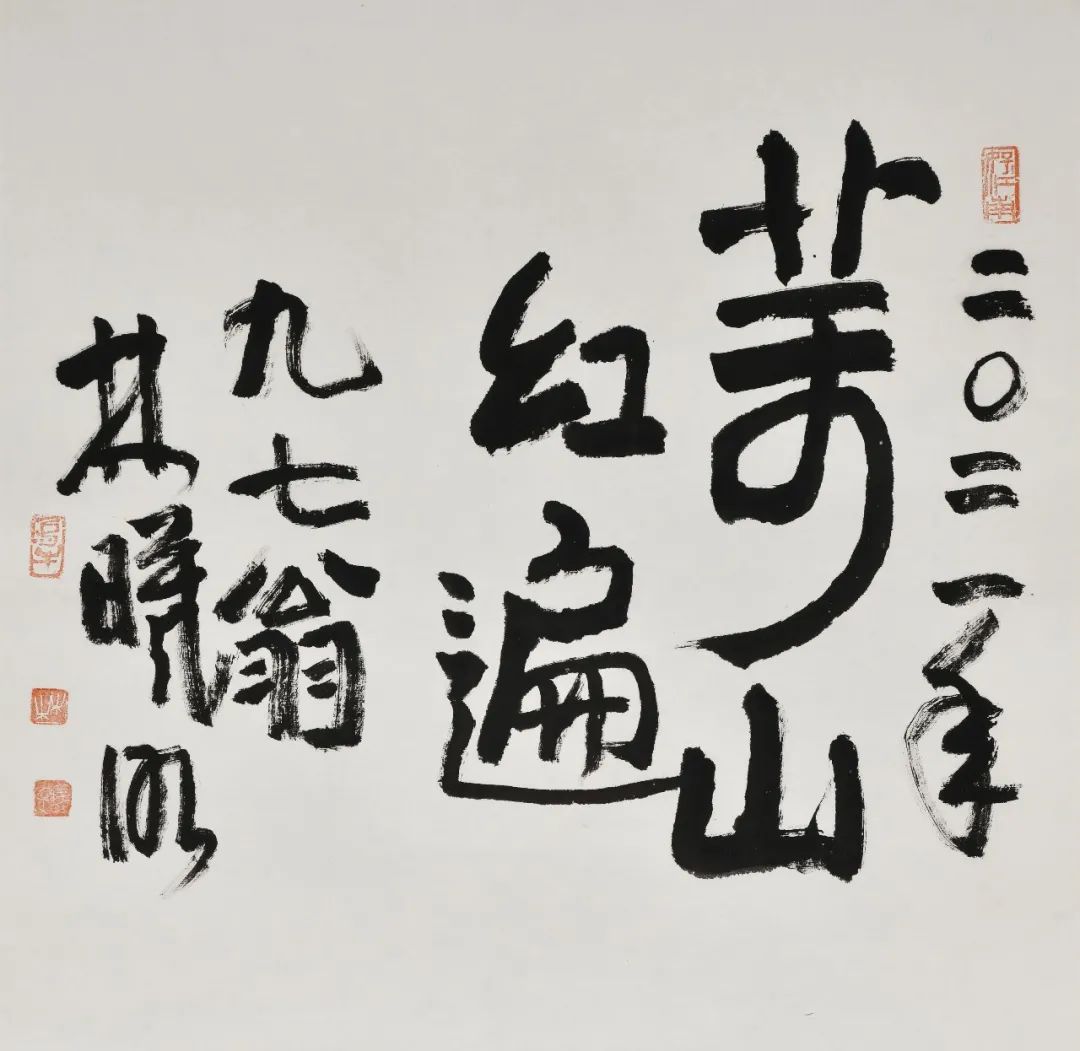 二〇二一年
萬山
红遍
九七翁
林曦明